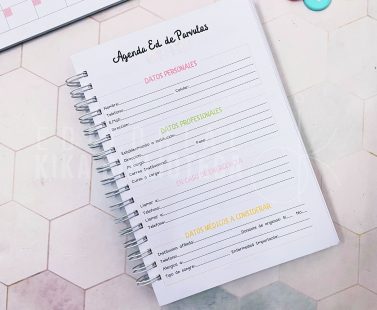 Agenda Ed. de Parvulos
DATOS PERSONALES
Nombre:
Telefono: Celular:
E-Mail:
Dirección:
DATOS PROFESIONALES
Establecimiento o institución:
Dirección: Fono:
Mi cargo:
Correo Institucional:
Curso a cargo:
EN CASO DE EMERGENCIA
Llamar a:
Teléfono:
Llamar a:
Teléfono:
DATOS MÉDICOS A CONSIDERAR
Institución afiliada: Donante de organos: Si__ No__
Teléfono:
Alergica a: Enfermedad Importante:
Tipo de sangre: